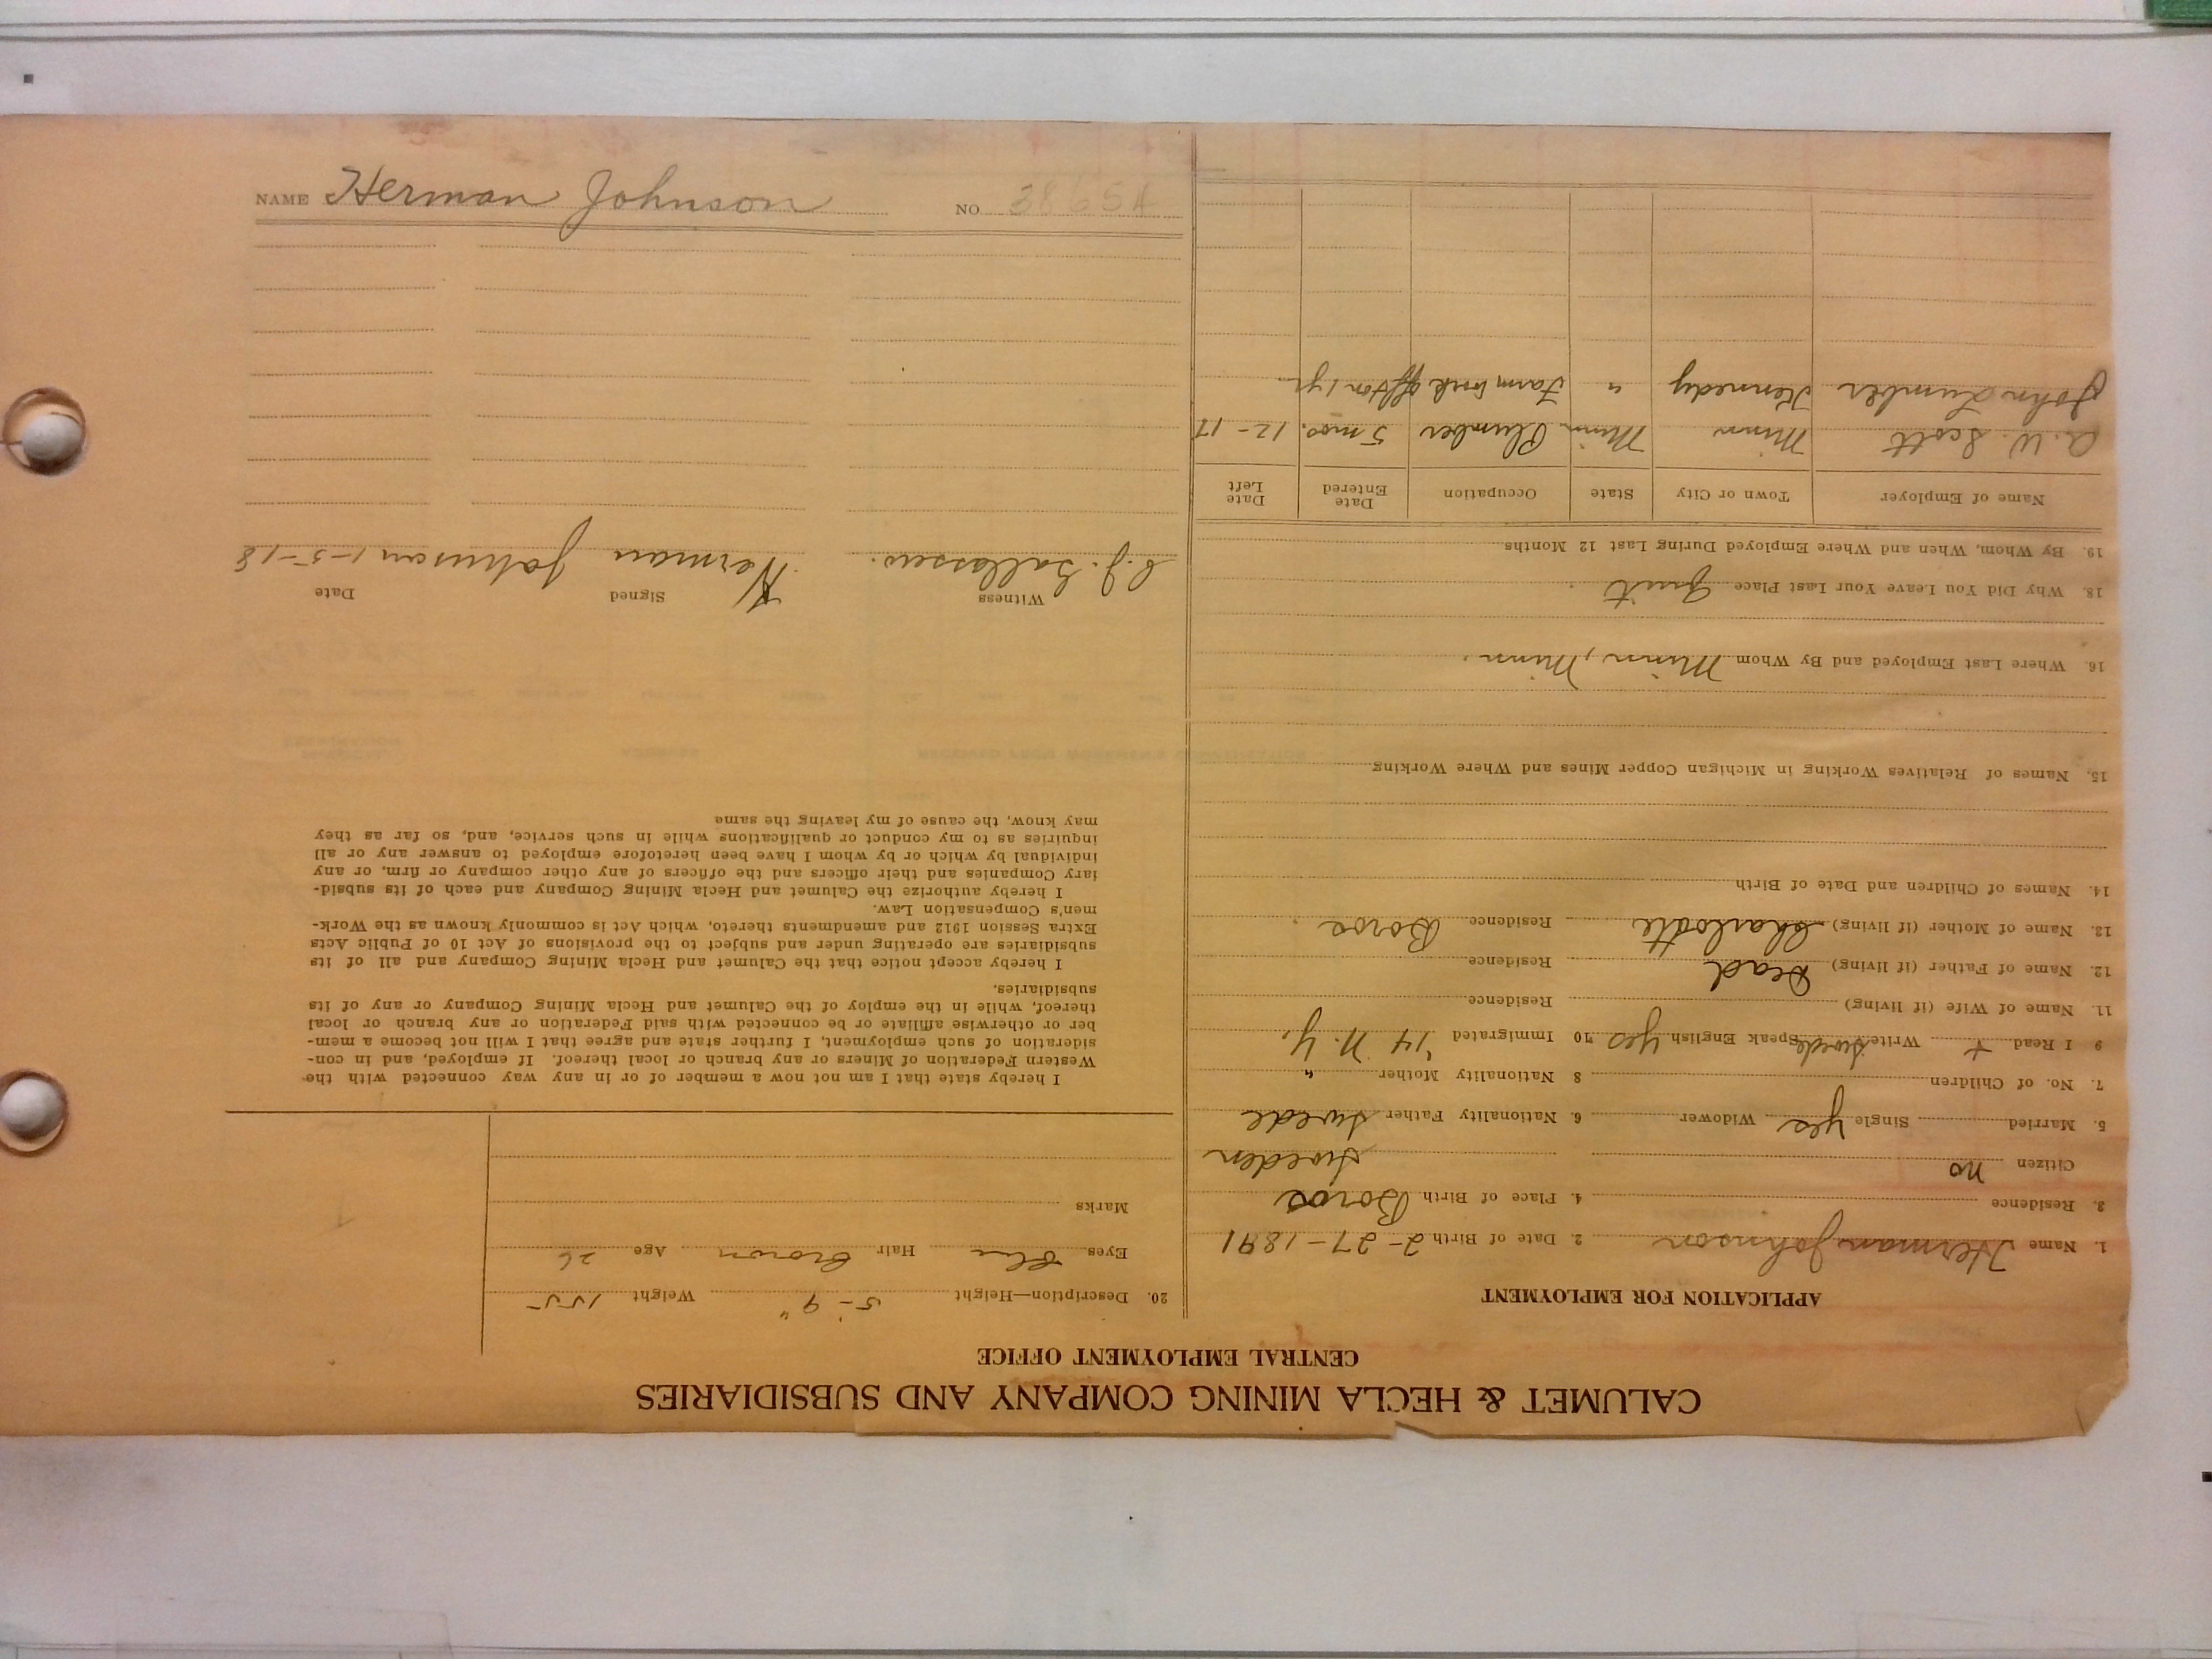 CALUMET & HECLA MINING COMPANY AND SUBSIDIARIES
CENTRAL EMPLOYMENT OFFICE
APPLICATION FOR EMPLOYMENT
1. Name Herman Johnson 2. Date of Birth 2-27-1891
3. Residence 4. Place of Birth Boros
Citizen no Sweden
5. Married Single yes Widower 6. Nationality Father Swede
7. No. of Children 8 Nationality Mother "
9 I Read + Write Swede Speak English yes 10 Immigrated '14 N. Y.
11. Name of Wife (if living) Residence
12. Name of Father (if living) Dead Residence
13. Name of Mother (if living) Charlotte Residence Boros
14. Names of Children and Date of Birth
15. Names of Relatives Working in Michigan Copper Mines and Where Working
16. Where Last Employed and By Whom Minn, Minn.
18. Why Did You Leave Your Last Place Quit
19. By Whom, When and Where Employed During Last 12 Months
Name of Employer Town or City State Occupation Date Entered Date Left
A. W. Scott Minn Minn Plumber 5 mos. 12-17
John Lumber Kennedy " Farm work off & on 1 yr.
20. Description—Height 5'-9" Weight 155
Eyes Blue Hair Brown Age 26
Marks
I hereby state that I am not now a member of or in any way connected with the
Western Federation of Miners or any branch or local thereof. If employed, and in con-
sideration of such employment, I further state and agree that I will not become a mem-
ber or otherwise affiliate or be connected with said Federation or any branch or local
thereof, while in the employ of the Calumet and Hecla Mining Company or any of its
subsidiaries.
I hereby accept notice that the Calumet and Hecla Mining Company and all of its
subsidiaries are operating under and subject to the provisions of Act 10 of Public Acts
Extra Session 1912 and amendments thereto, which Act is commonly known as the Work-
men's Compensation Law.
I hereby authorize the Calumet and Hecla Mining Company and each of its subsid-
iary Companies and their officers and the officers of any other company or firm, or any
individual by which or by whom I have been heretofore employed to answer any or all
inquiries as to my conduct or qualifications while in such service, and, so far as they
may know, the cause of my leaving the same
Witness Signed Date
Herman Johnson 1-5-18
NAME Herman Johnson NO. 38654